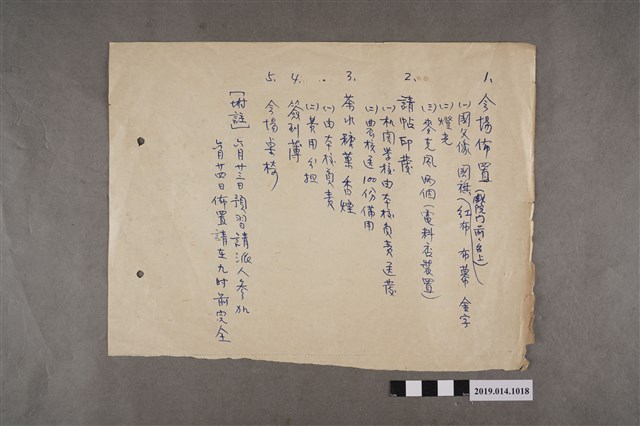 1. 會場佈置
(一)國父像 國旗(紅布 布幕 金字
(戲院門前、台上)
(二)燈光
(三)麥克風兩個(電料否裝置)
2. 請帖印發
(一)機関學校由本校負責送發
(二)農校送100份備用
3. 茶水糖菓香煙
(一)由本校負責
(二)費用分担
4. 簽到簿
5. 會場桌椅
[附註] 六月廿三日預習請派人參加
六月廿四日佈置請在九時前完全
2019.014.1018